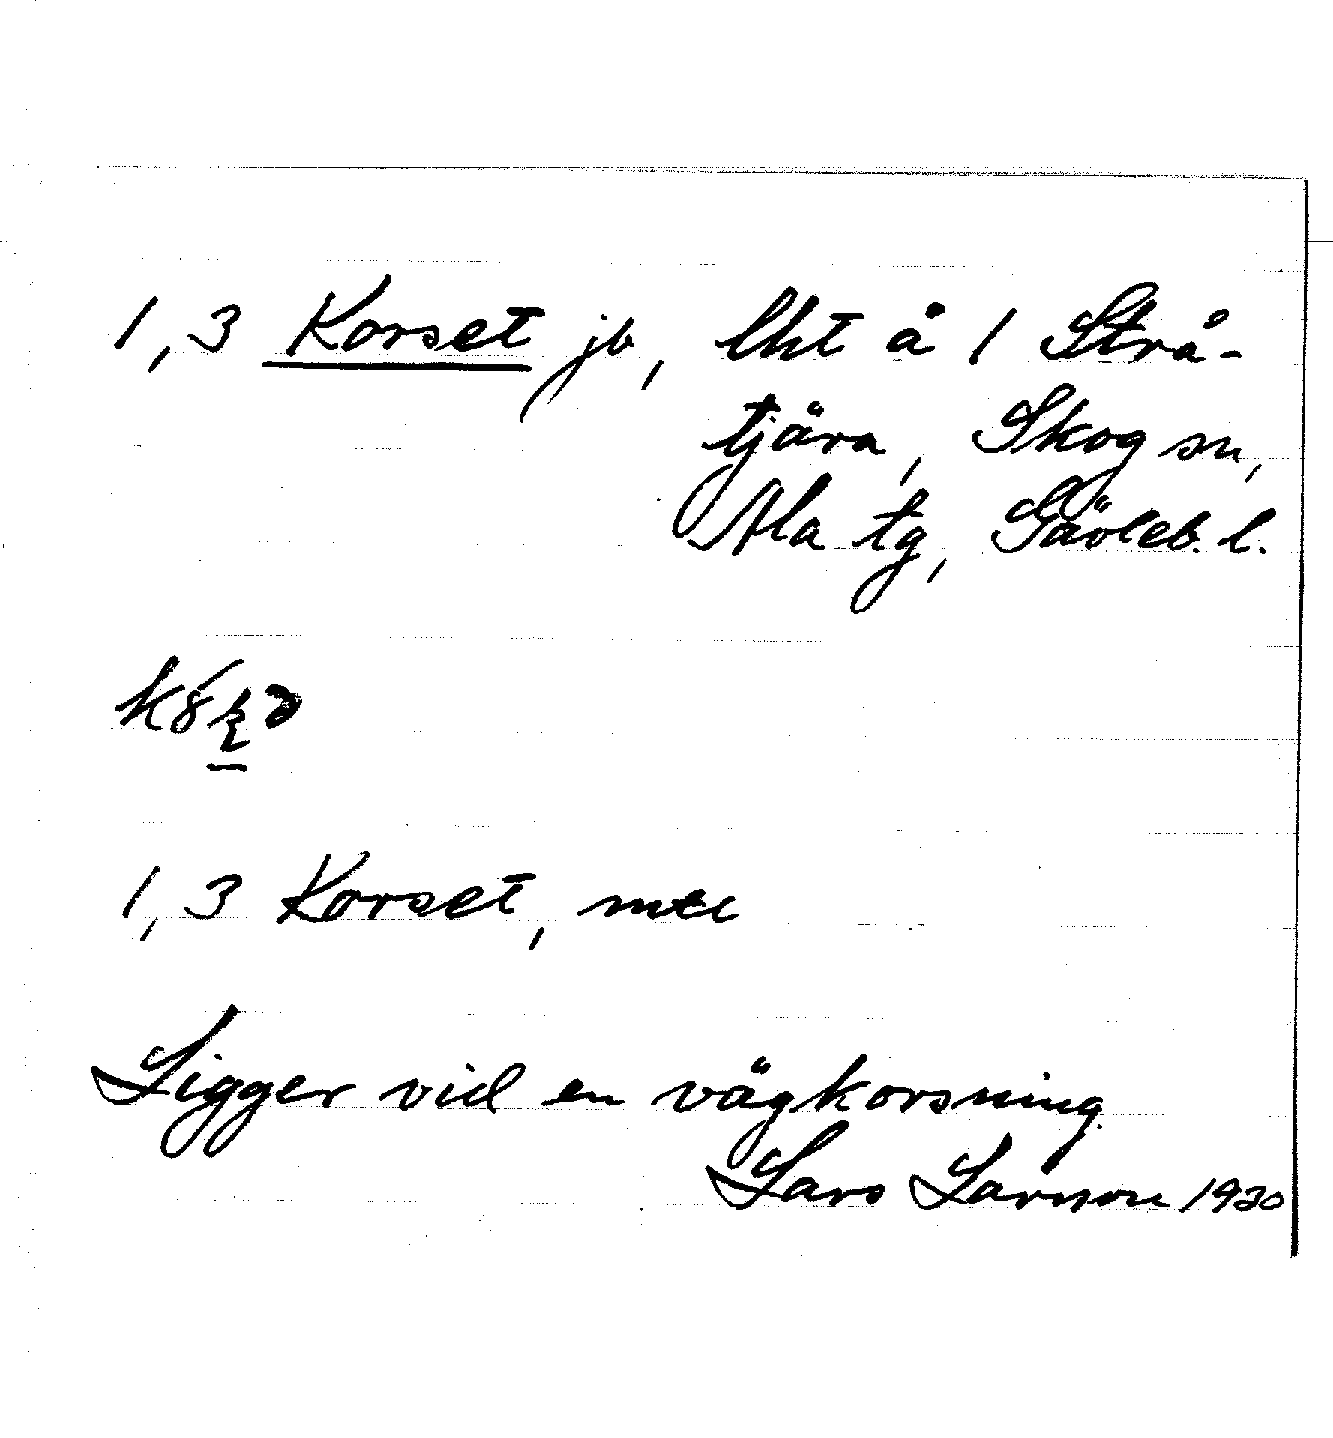 1,3 Korset jb, lht å 1 Strå-
tjära, Skog sn,
Ala tg, Gävleb. l.
1,3 Korset, mtl
Ligger vid en vägkorsning.
Lars Larsson 1920